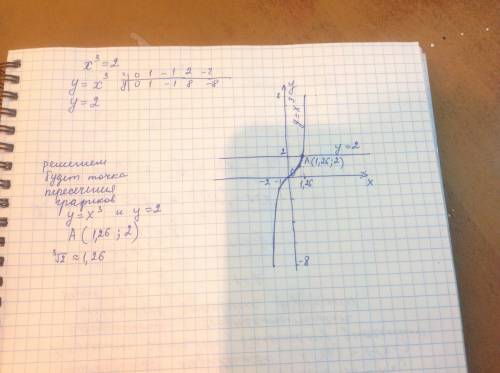 x³ = 2
y = x³ x 0 1 -1 2 -2
y 0 1 -1 8 -8
y = 2
решением
будет точка
пересечения
графиков
y = x³ и y = 2
A (1,26 ; 2)
³√2 ≈ 1,26
y = x³
y = 2
2
A (1,26; 2)
-2 -1
1,26
x
-8